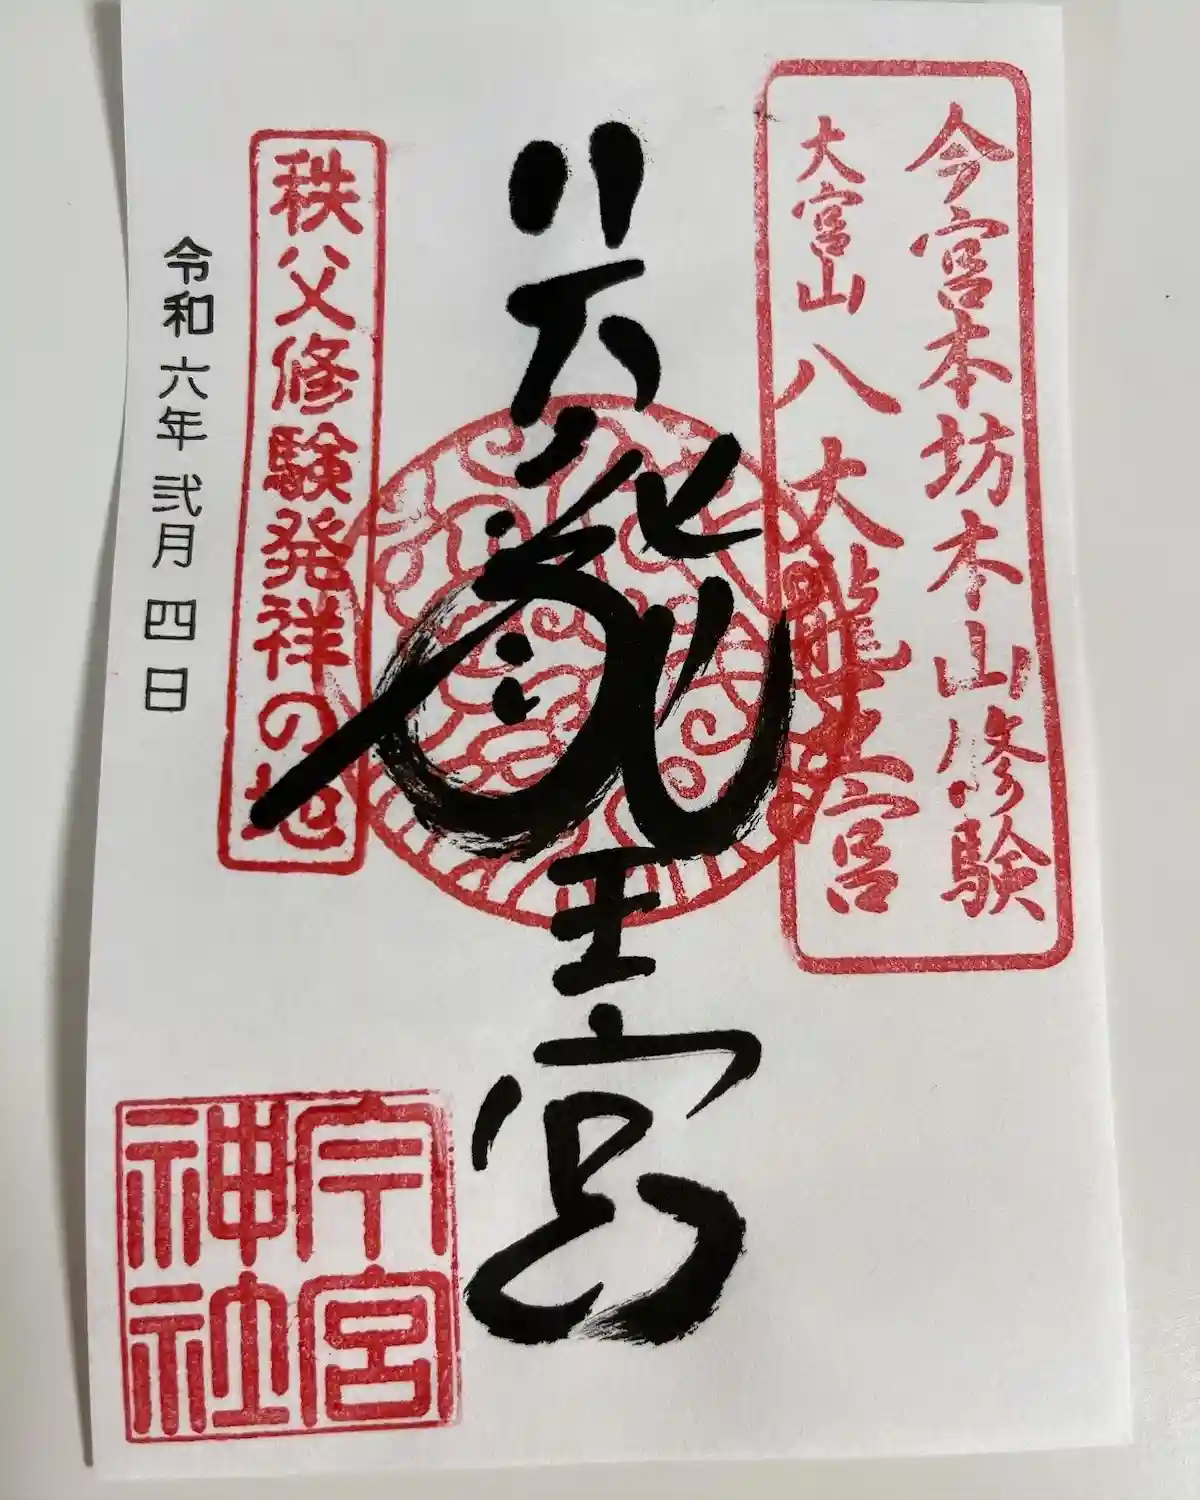 今宮本坊本山修験
大宮山八大龍王宮
八大龍王宮
秩父修験発祥の地
令和六年弐月四日
今宮
神社